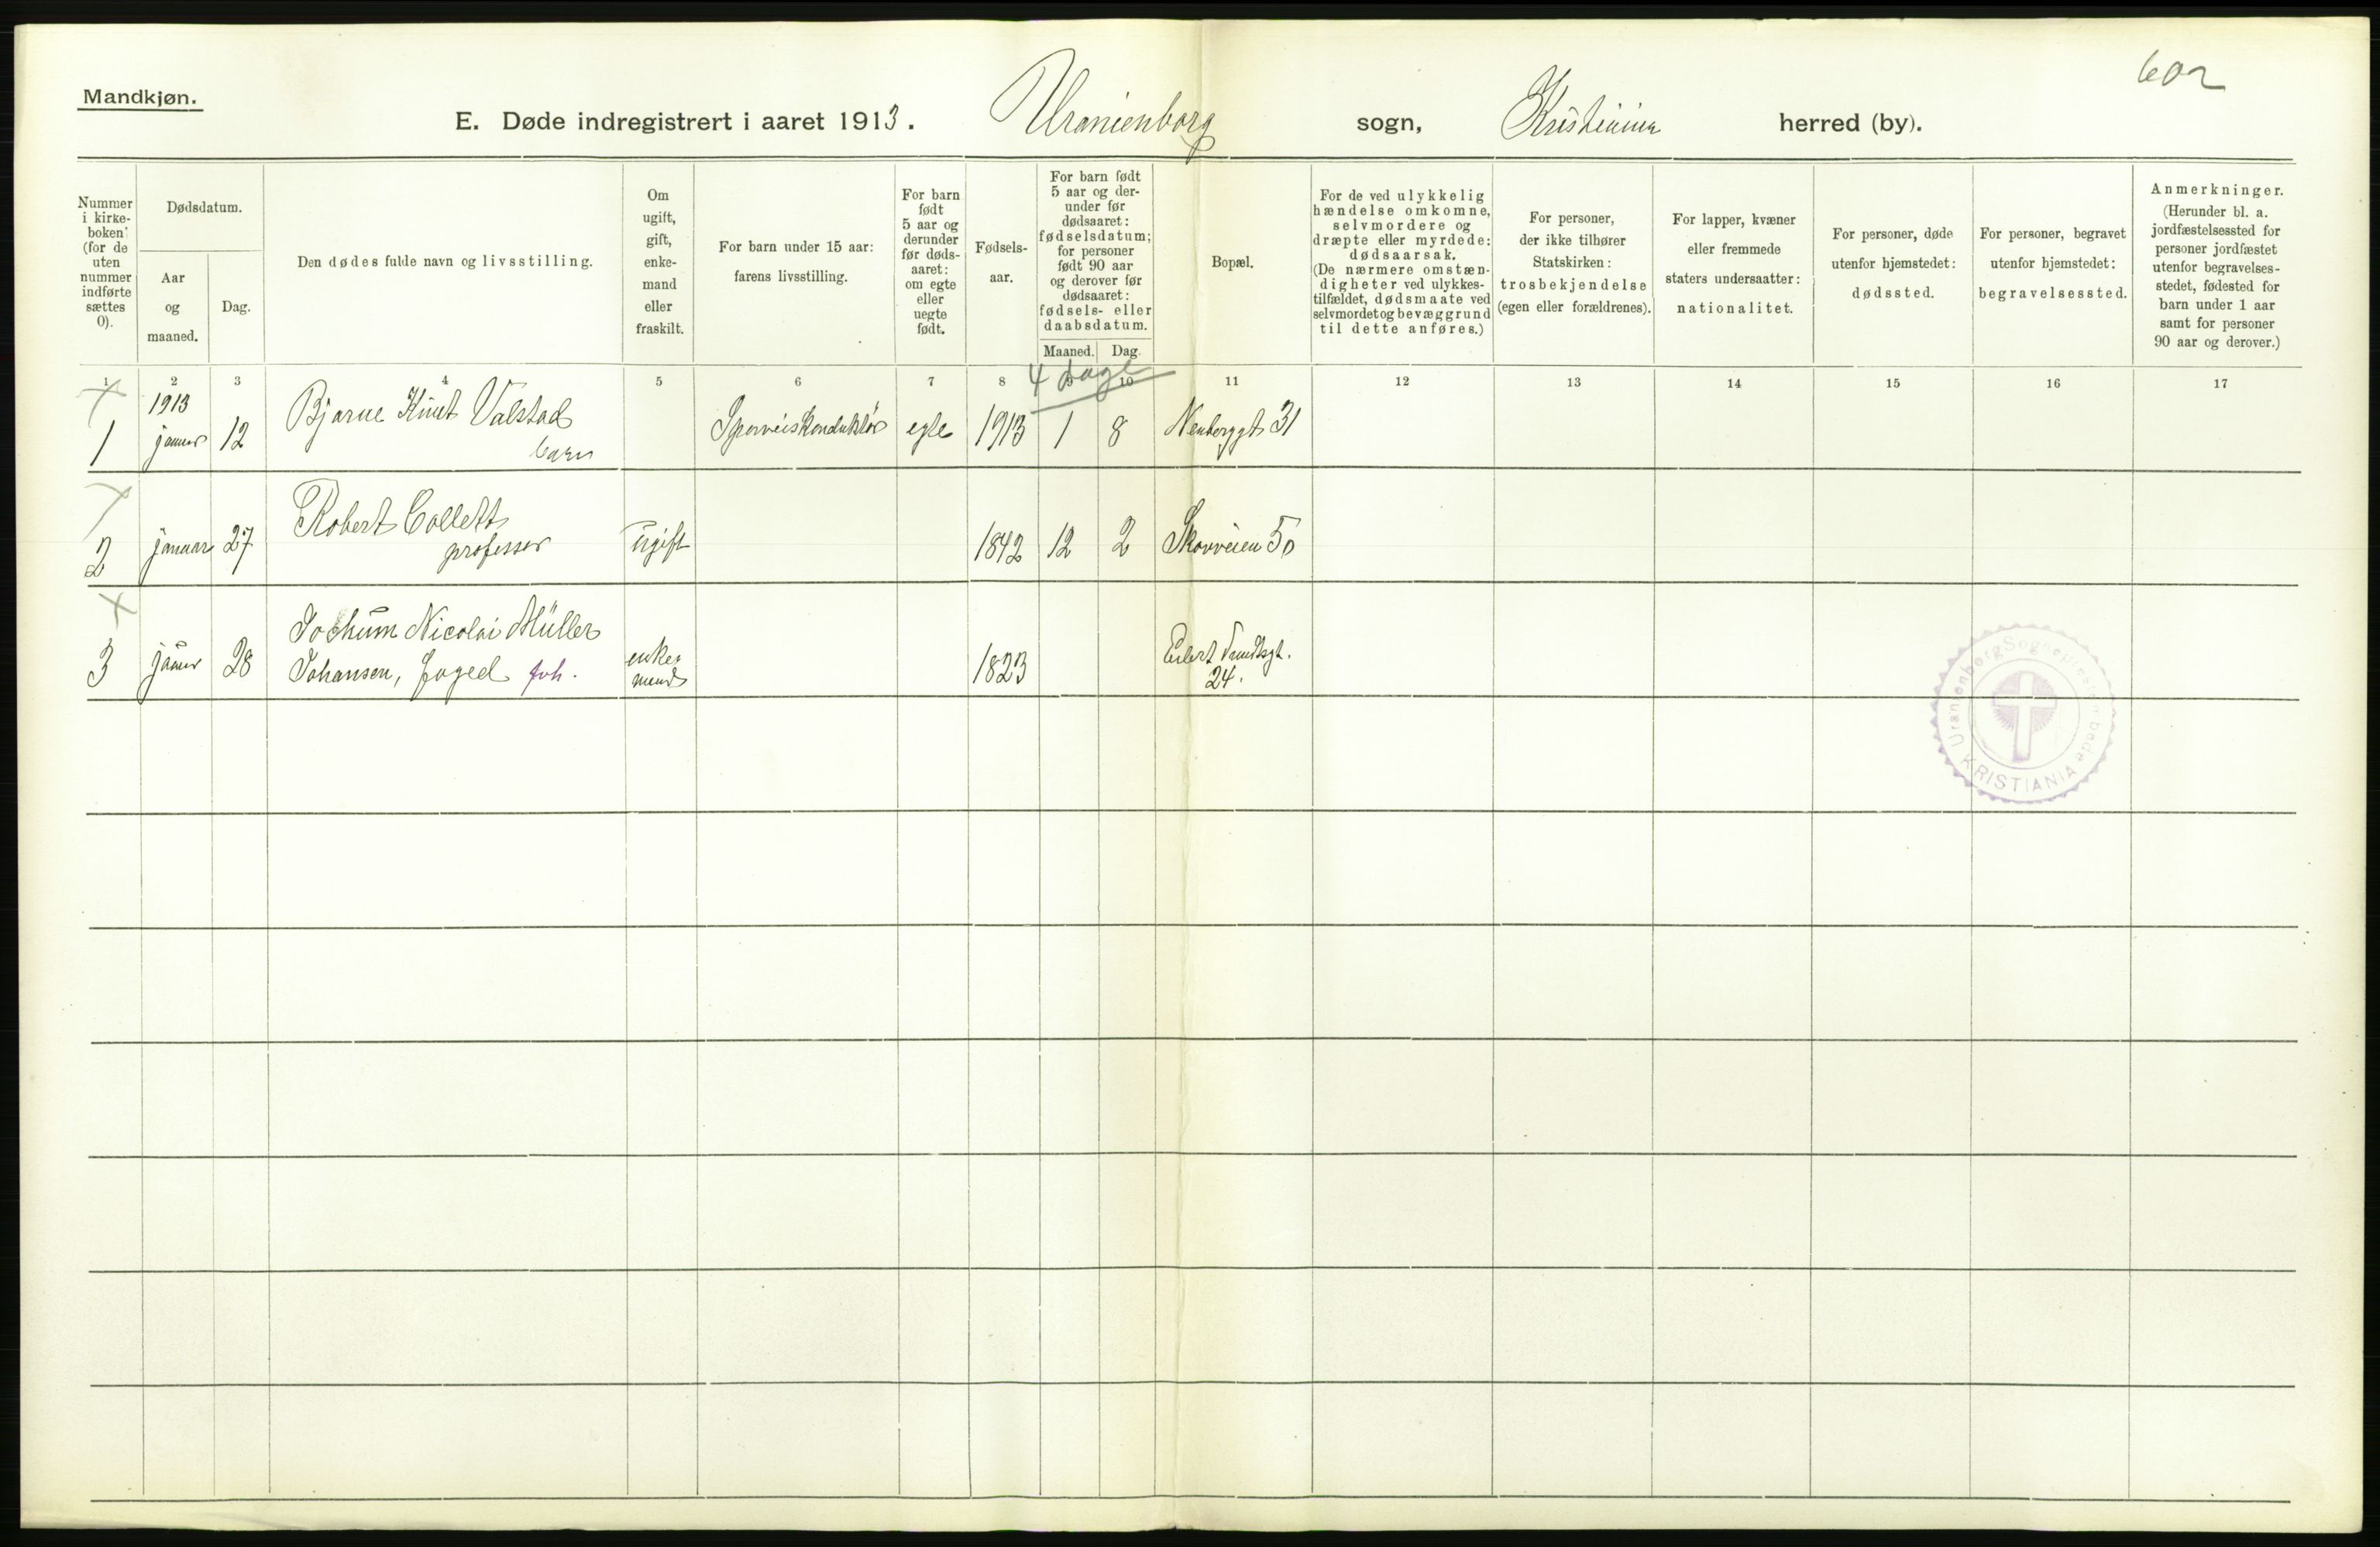 602
Mandkjøn.
E. Døde indregistrert i aaret 1913. Uranienborg sogn, Kristiania herred (by).
Nummer i kirke- boken (for de uten nummer indførte sættes 0).
Dødsdatum.
Aar og maaned.
Dag.
Den dødes fulde navn og livsstilling.
Om ugift, gift, enke- mand eller fraskilt.
For barn under 15 aar: farens livsstilling.
For barn født 5 aar og derunder før døds- aaret: om egte eller uegte født.
Fødsels- aar.
For barn født 5 aar og der- under før dødsaaret: fødselsdatum; for personer født 90 aar og derover før dødsaaret: fødsels- eller daabsdatum.
Maaned. Dag.
Bopæl.
For de ved ulykkelig hændelse omkomne, selvmordere og dræpte eller myrdede: dødsaarsak. (De nærmere omstæn- digheter ved ulykkes- tilfældet, dødsmaate ved selvmordet og bevæggrund til dette anføres.)
For personer, der ikke tilhører Statskirken: trosbekjendelse (egen eller forældrenes).
For lapper, kvæner eller fremmede staters undersaatter: nationalitet.
For personer, døde utenfor hjemstedet: dødssted.
For personer, begravet utenfor hjemstedet: begravelsessted.
Anmerkninger. (Herunder bl. a. jordfæstelsessted for personer jordfæstet utenfor begravelses- stedet, fødested for barn under 1 aar samt for personer 90 aar og derover.)
1 2 3 4 5 6 7 8 9 10 11 12 13 14 15 16 17
4 dage
1 1913 januar 12 Bjarne Knut Valstad barn Sporveiskonduktør egte 1913 1 8 Neuberggt 31
2 januar 27 Robert Collett professor ugift 1842 12 2 Skovveien 50
3 januar 28 Jochum Nicolai Müller
Johansen, foged fvh. enke- mand 1823 Eilert Sundtsgt. 24.
Uranienborg Sogneprestembede
KRISTIANIA